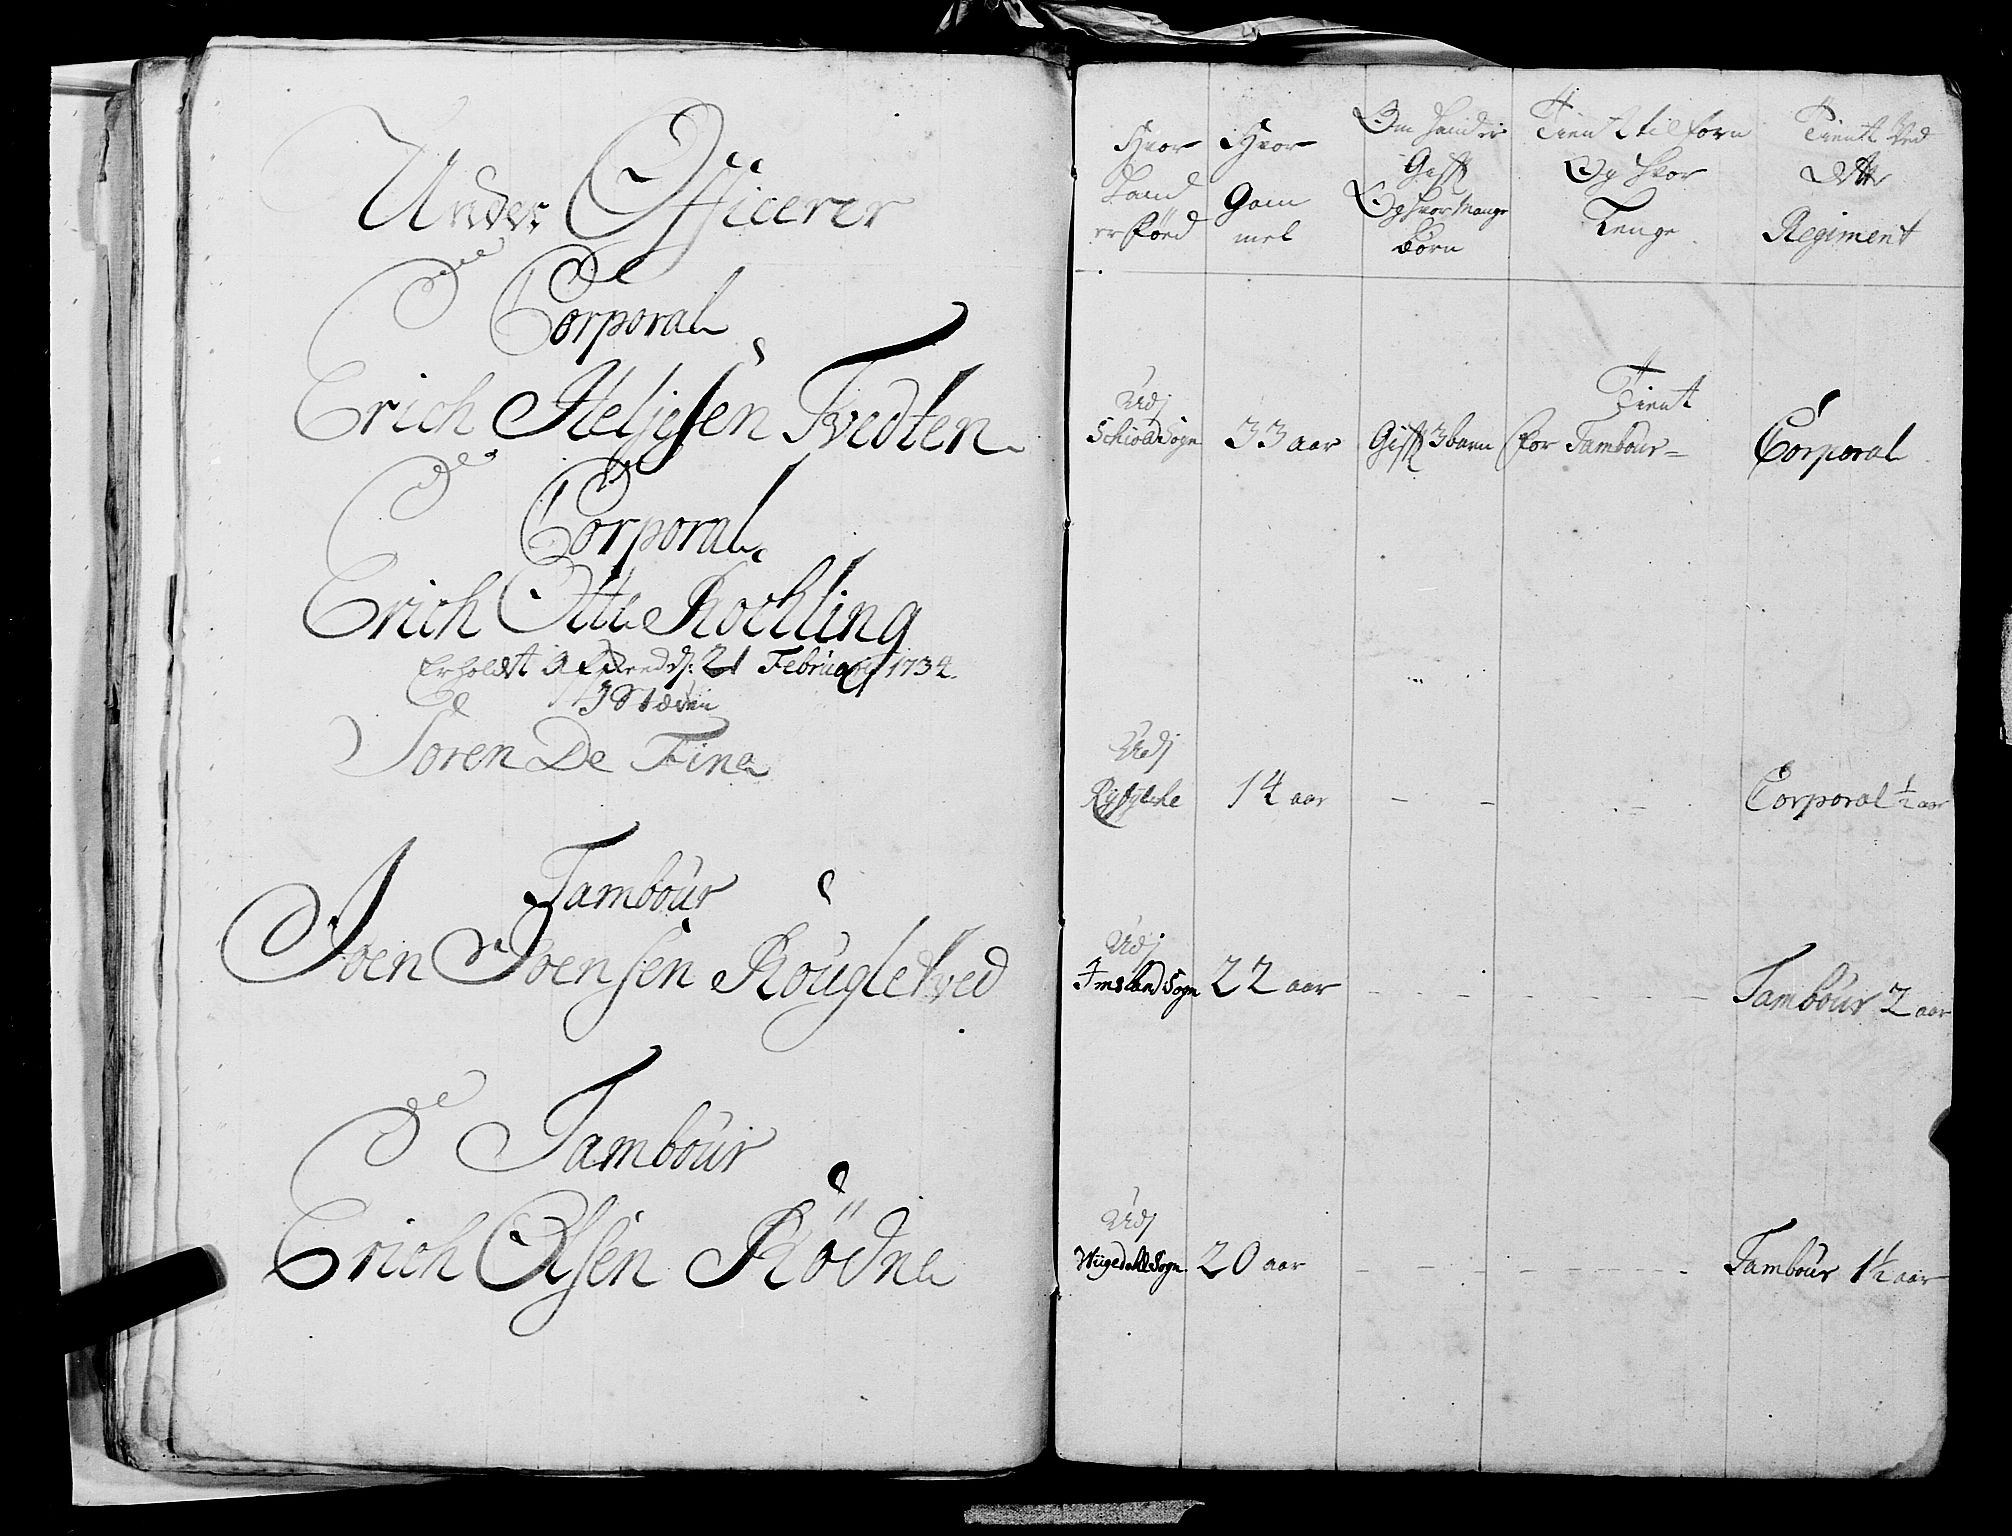 Under Officerer
Corporal
Erich Heljesen Tvedten
Corporal
Erich Otto Rochling
Erholdt Afskeed d: 21 Februarij 1734
I Stæden
Søren De Fine
Tambour
Joen Joensen Rougletved
Tambour
Erich Olsen Rödne
Hvor
Land
er Föed
Hvor
Gam
mel
Om hand er
Gift
Og hvor Mange
Börn
Tient tilforn
Og hvor
Lenge
Tient ved
dette
Regiment
Udj
Schiold Sogn
33 aar
Gift 3 barn
Tient
for Tambour
Corporal
Udj
Ryfylche
14 aar
Corporal ½ aar
Udj
Imsland Sogn
22 aar
Tambour 2 aar
Udj
Wiigedahl Sogn
20 aar
Tambour 1½ aar